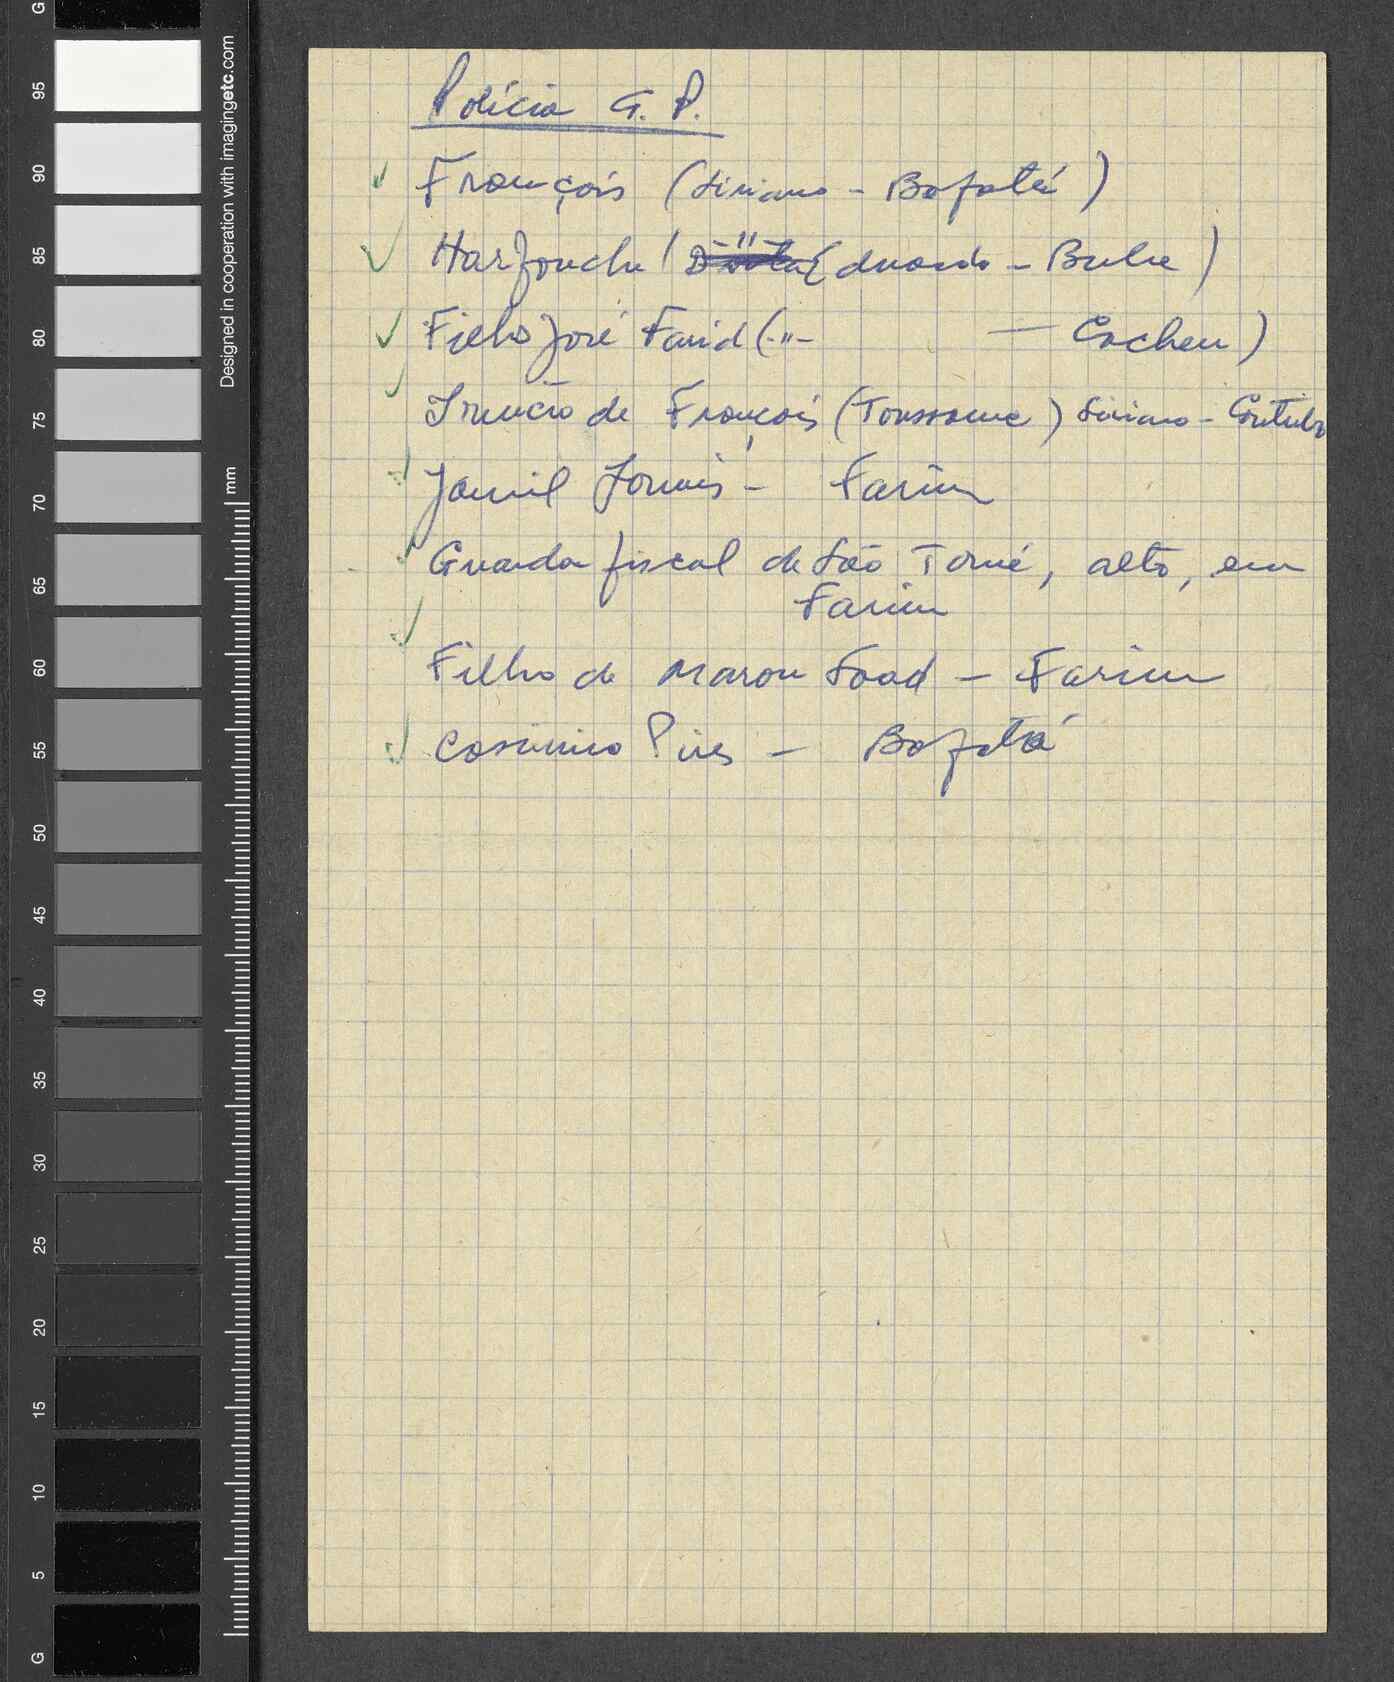 Polícia G. P.
✓ François (Sirians - Bafatá)
✓ Harfouche ( -"- Eduardo - Bula)
✓ Filho José Farid (-"- — Cacheu)
✓ Irmão de François (Toussaune) Siriano - Contubo
✓ Jamil - Farim
✓ Guarda fiscal de São Tomé, alto, em
Farim
✓ Filho de Maron Saad - Farim
✓ Casimiro Pires - Bafatá
Designed in cooperation with imagingetc.com
mm
G
95
90
85
80
75
70
65
60
55
50
45
40
35
30
25
20
15
10
5
G